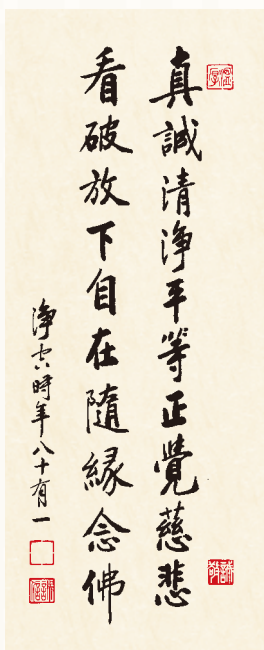 真誠清淨平等正覺慈悲
看破放下自在隨緣念佛
淨空時年八十有一